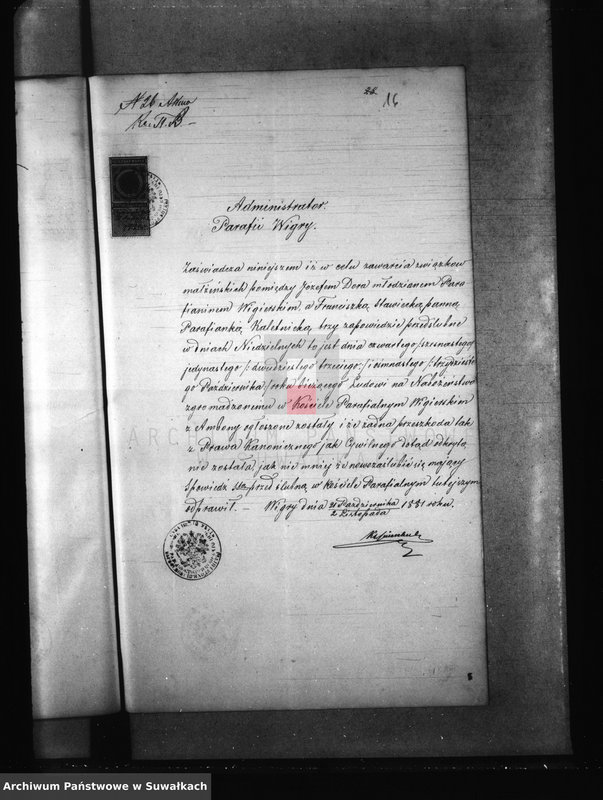 N 26 Aktu
22.
16
Administrator
Parafii Wigry.
Zaświadcza niniejszem iż w celu zawarcia związków
małżeńskich pomiędzy Józefem Dora młodzianem Para
fianinem Wigierskim, a Franciszką Sławiecką panną
Parafianką Kaletnicką, trzy zapowiedzie przedślubne
w dniach Niedzielnych to jest dnia czwartego /:szesnastego:/
jedynastego /: dwudziestego trzeciego:/ i ośmnastego /: trzydzieste
go Października :/ roku bieżącego Ludowi na Nabożeństwo
zgromadzonemu w Kościele Parafialnym Wigierskim
z Ambony ogłoszone zostały i że żadna przeszkoda tak
z Prawa Kanonicznego jak Cywilnego dotąd odkrytą
nie została, jak nie mniej że nowozaślubić się mający
spowiedź przedślubną w kościele Parafialnym tutejszym
odprawił. — Wigry dnia 21 Października 1881 roku.
2 Listopada
Archiwum Państwowe w Suwałkach